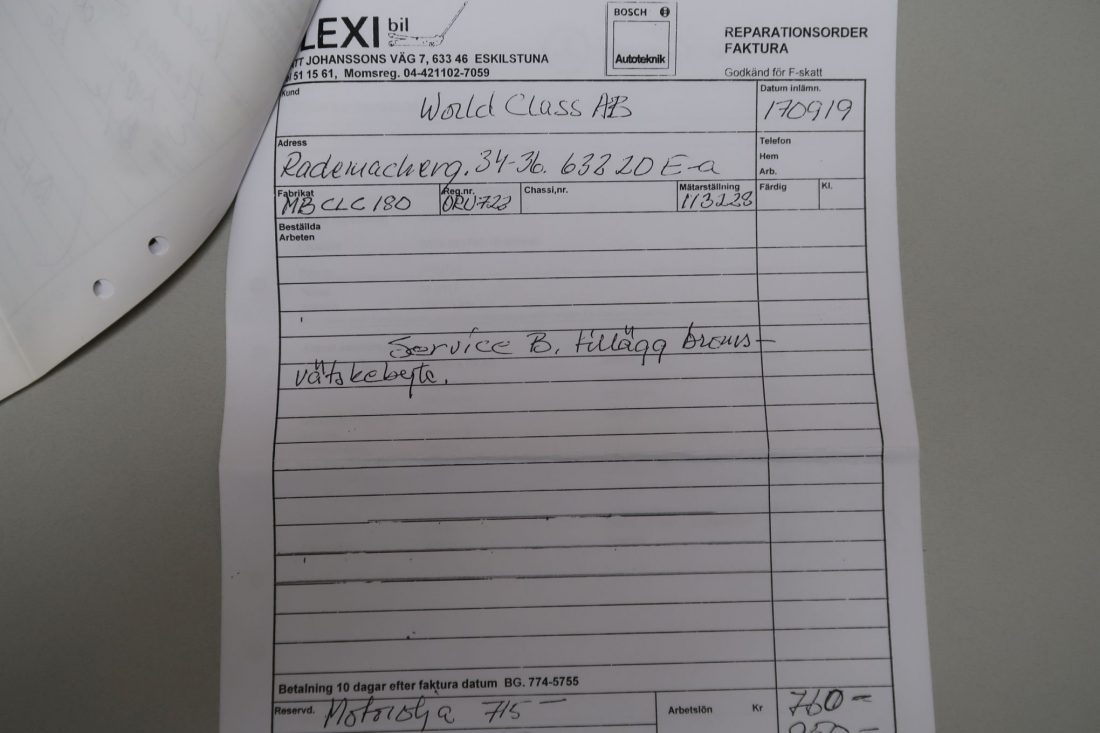 LEXI bil
BOSCH
Autoteknik
REPARATIONSORDER
FAKTURA
JOHANSSONS VÄG 7, 633 46 ESKILSTUNA
51 15 61, Momsreg. 04-421102-7059
Godkänd för F-skatt
Kund
World Class AB
Datum inlämn.
170919
Adress
Rademacherg. 34-36. 632 20 E-a
Telefon
Hem
Arb.
Fabrikat
MB CLC 180
Reg.nr.
Chassi,nr.
Mätarställning
113228
Färdig
Kl.
Beställda
Arbeten
Service B, tillägg broms-
vätskebyte.
Betalning 10 dagar efter faktura datum BG. 774-5755
Reservd. Motorolja 715-
Arbetslön Kr 760-